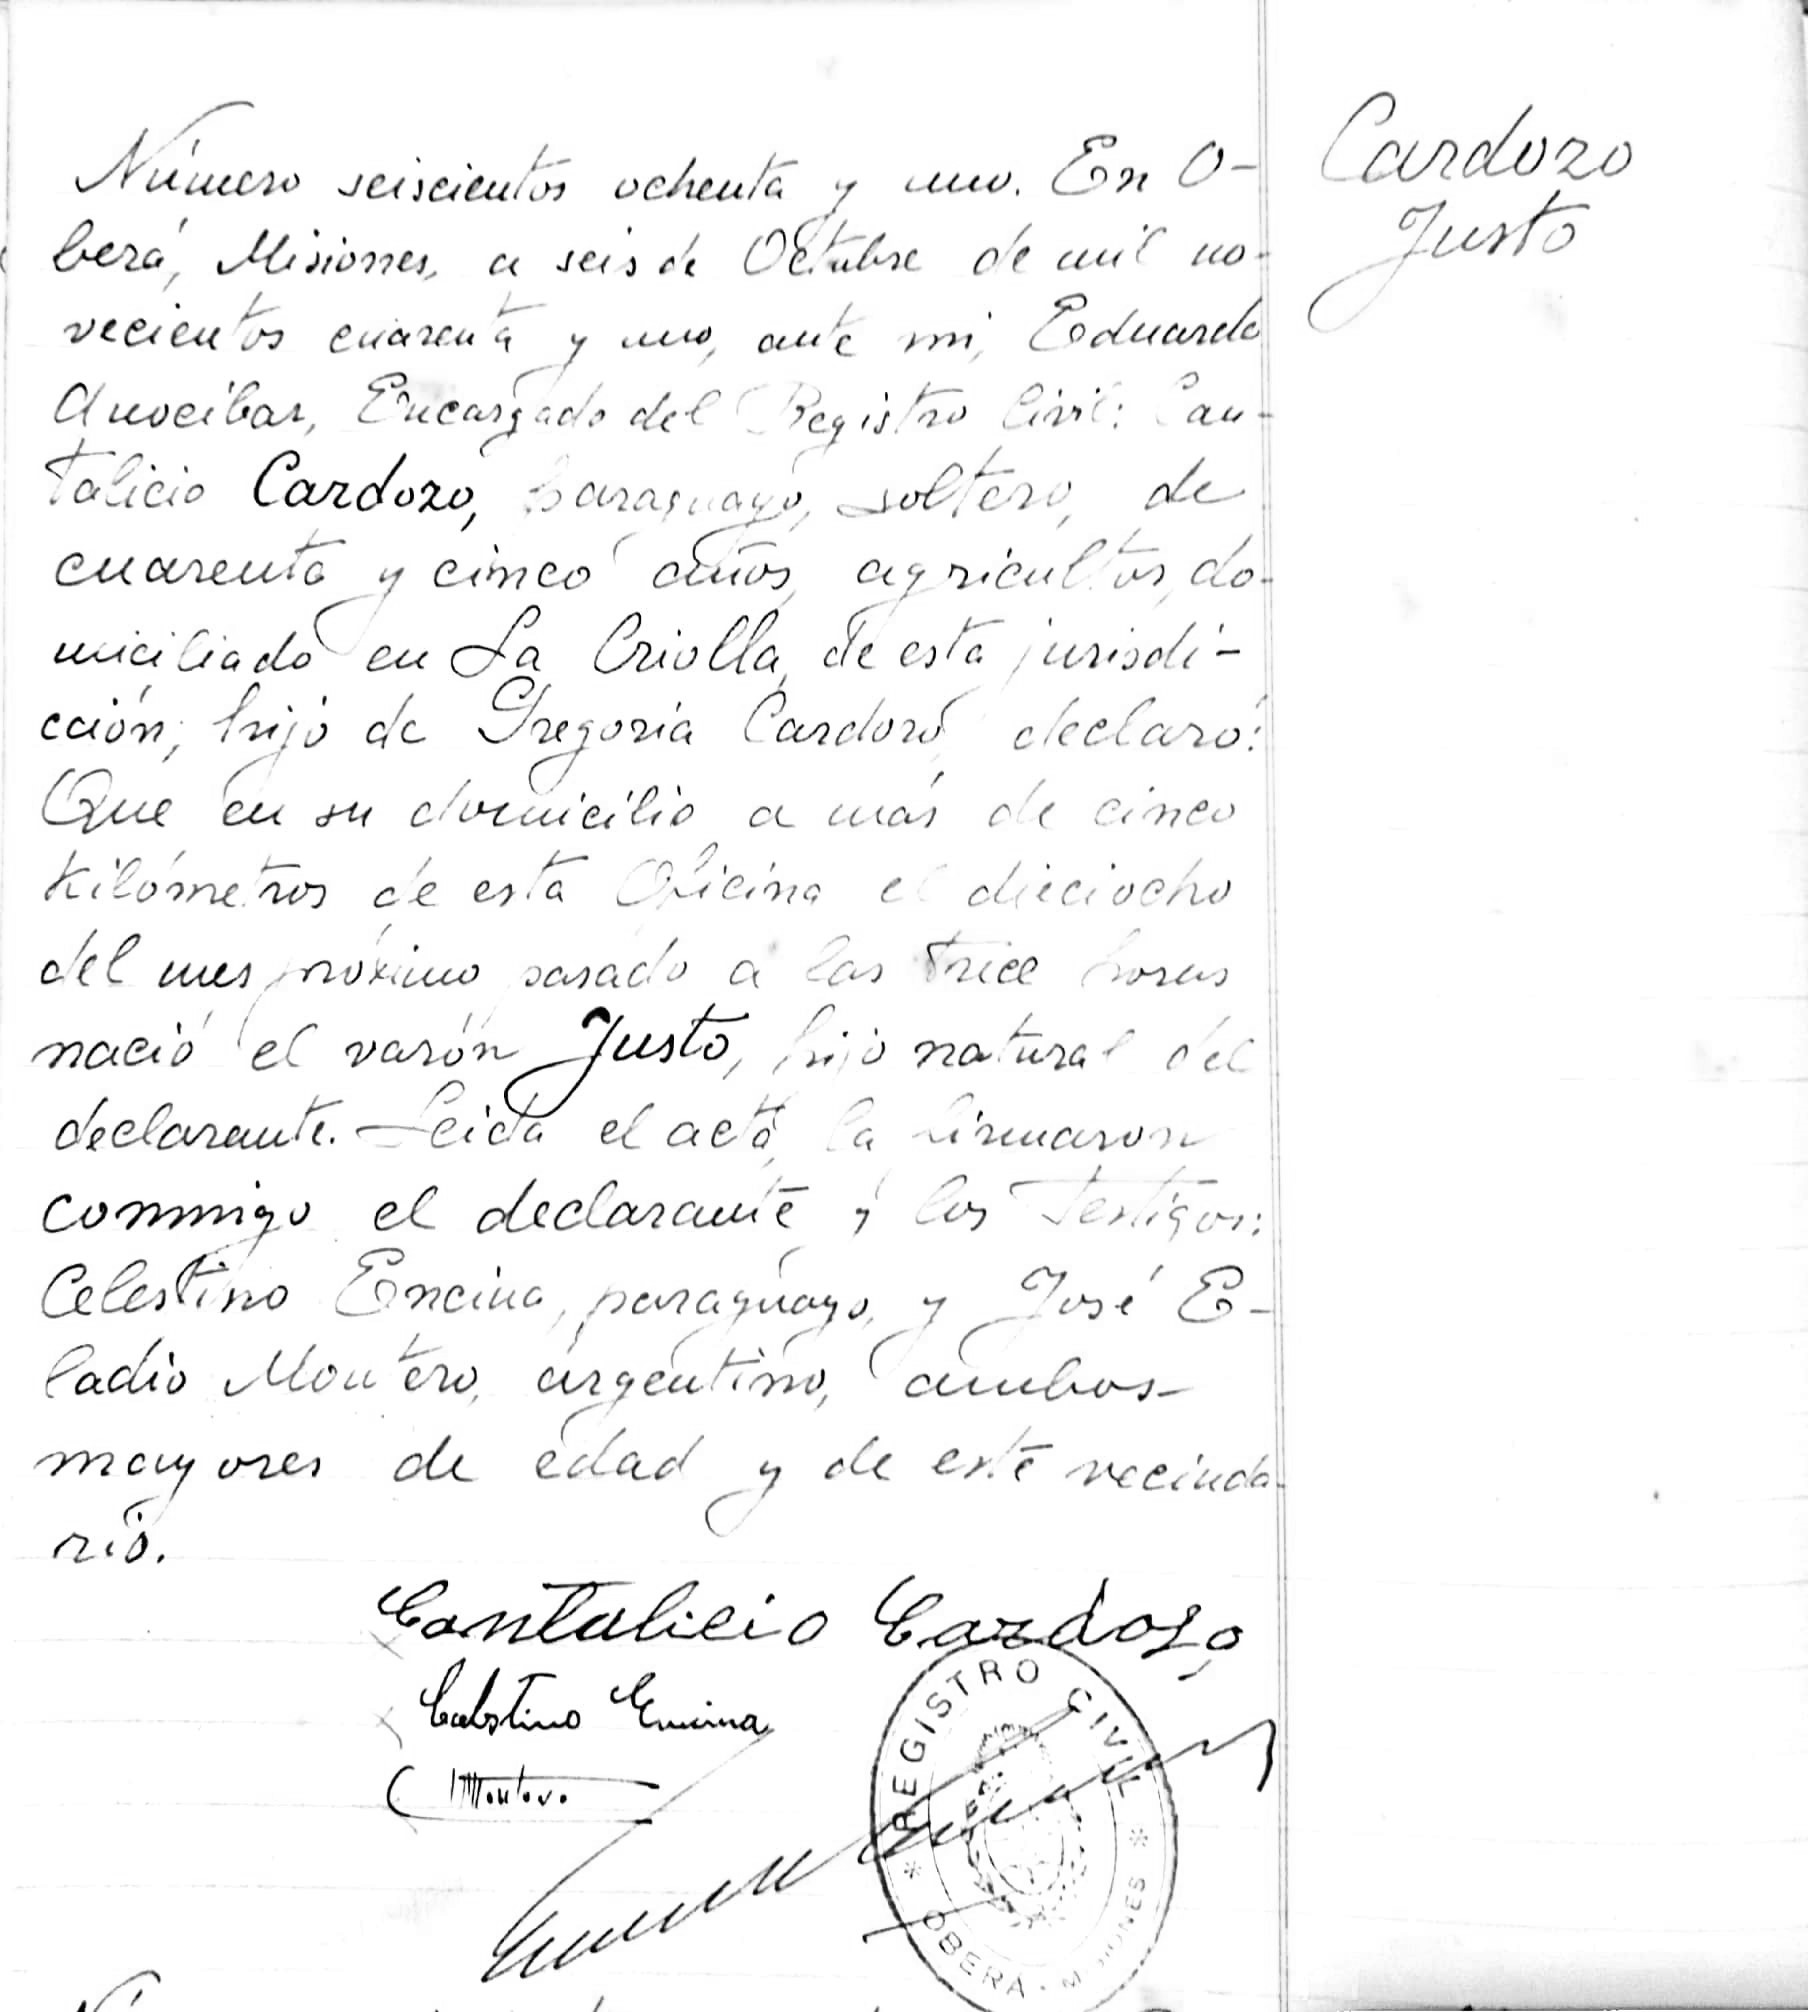 Número seiscientos ochenta y uno. En O-
berá, Misiones, a seis de Octubre de mil no-
vecientos cuarenta y uno, ante mi, Eduardo
Anocibar, Encargado del Registro Civil: Can-
talicio Cardozo, paraguayo, soltero, de
cuarenta y cinco años, agricultor, do-
miciliado en La Criolla, de esta jurisdi-
cción, hijo de Gregoria Cardozo, declaró:
Que en su domicilio a más de cinco
kilómetros de esta Oficina el dieciocho
del mes próximo pasado a las trece horas
nació el varón Justo, hijo natural del
declarante. Leida el acta, la firmaron
conmigo el declarante y los testigos:
Celestino Encina, paraguayo, y José E-
ladio Montero, argentino, ambos
mayores de edad y de este vecinda-
rio.
Cantalicio Cardozo
Celestino Encina
Montero
REGISTRO CIVIL
* OBERÁ - MISIONES *
Cardozo
Justo